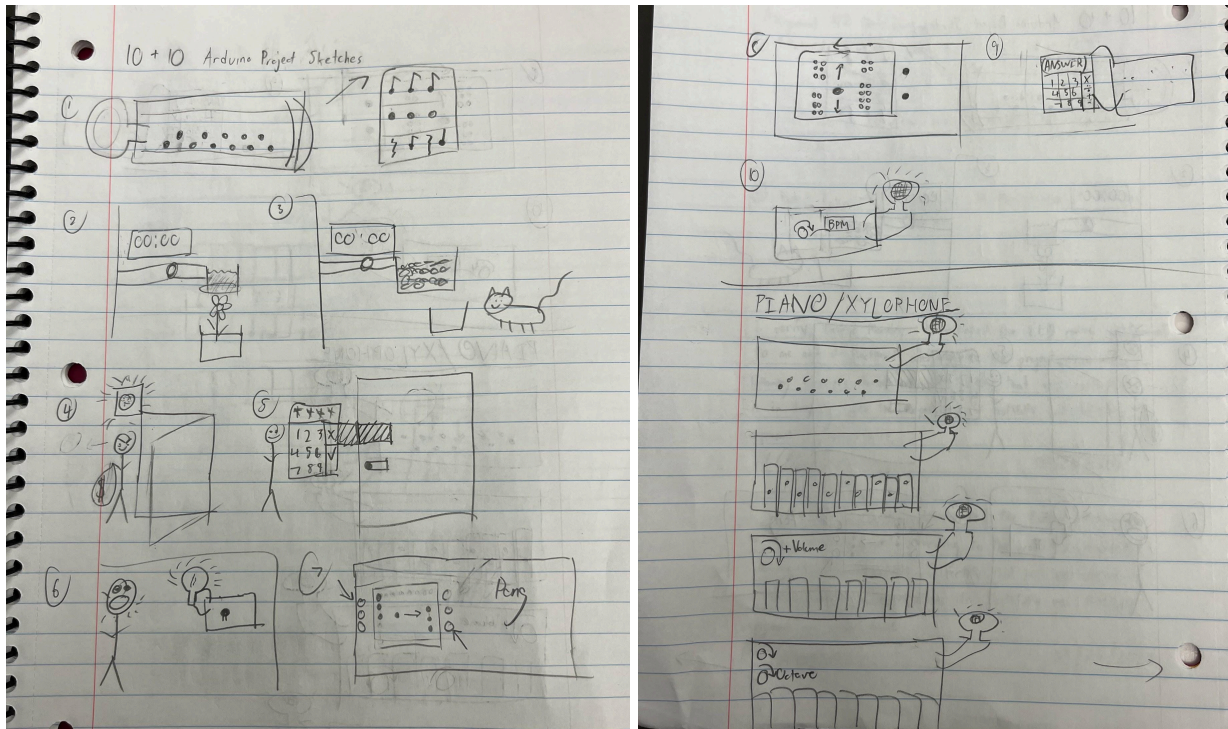 10 + 10 Arduino Project Sketches
1
2
00:00
3
00:00
4
5
* * * *
1 2 3 X
4 5 6 ✓
7 8 9
6
7
Pong
8
9
ANSWER
1 2 3 X
4 5 6
7 8 9
10
BPM
PIANO/XYLOPHONE
+Volume
Octave